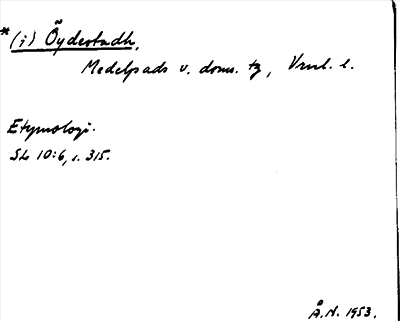 *(i) Öydestadh,
Medelpads v. doms. tg, Vrml. l.
Etymologi.
SL 10:6, s. 315.
Å.N. 1953.